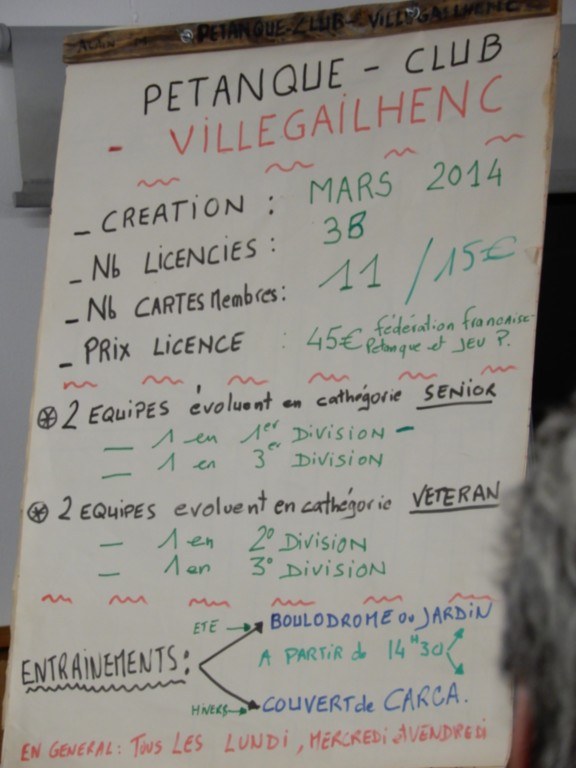 ALAIN M. PETANQUE-CLUB-VILLEGAILHENC
PETANQUE - CLUB
- VILLEGAILHENC
- CREATION : MARS 2014
- Nb LICENCIES : 38
- Nb CARTES Membres : 11 / 15€
- PRIX LICENCE : 45€ fédération française Petanque et JEU P.
⊛ 2 EQUIPES évoluent en cathégorie SENIOR
— 1 en 1er DIVISION -
— 1 en 3er DIVISION
⊛ 2 EQUIPES evoluent en cathégorie VETERAN
— 1 en 2° DIVISION
— 1 en 3° DIVISION
ETE → BOULODROME ou JARDIN
ENTRAINEMENTS : A PARTIR de 14H30
HIVERS → COUVERT de CARCA.
EN GENERAL : TOUS LES LUNDI, MERCREDI & VENDREDI